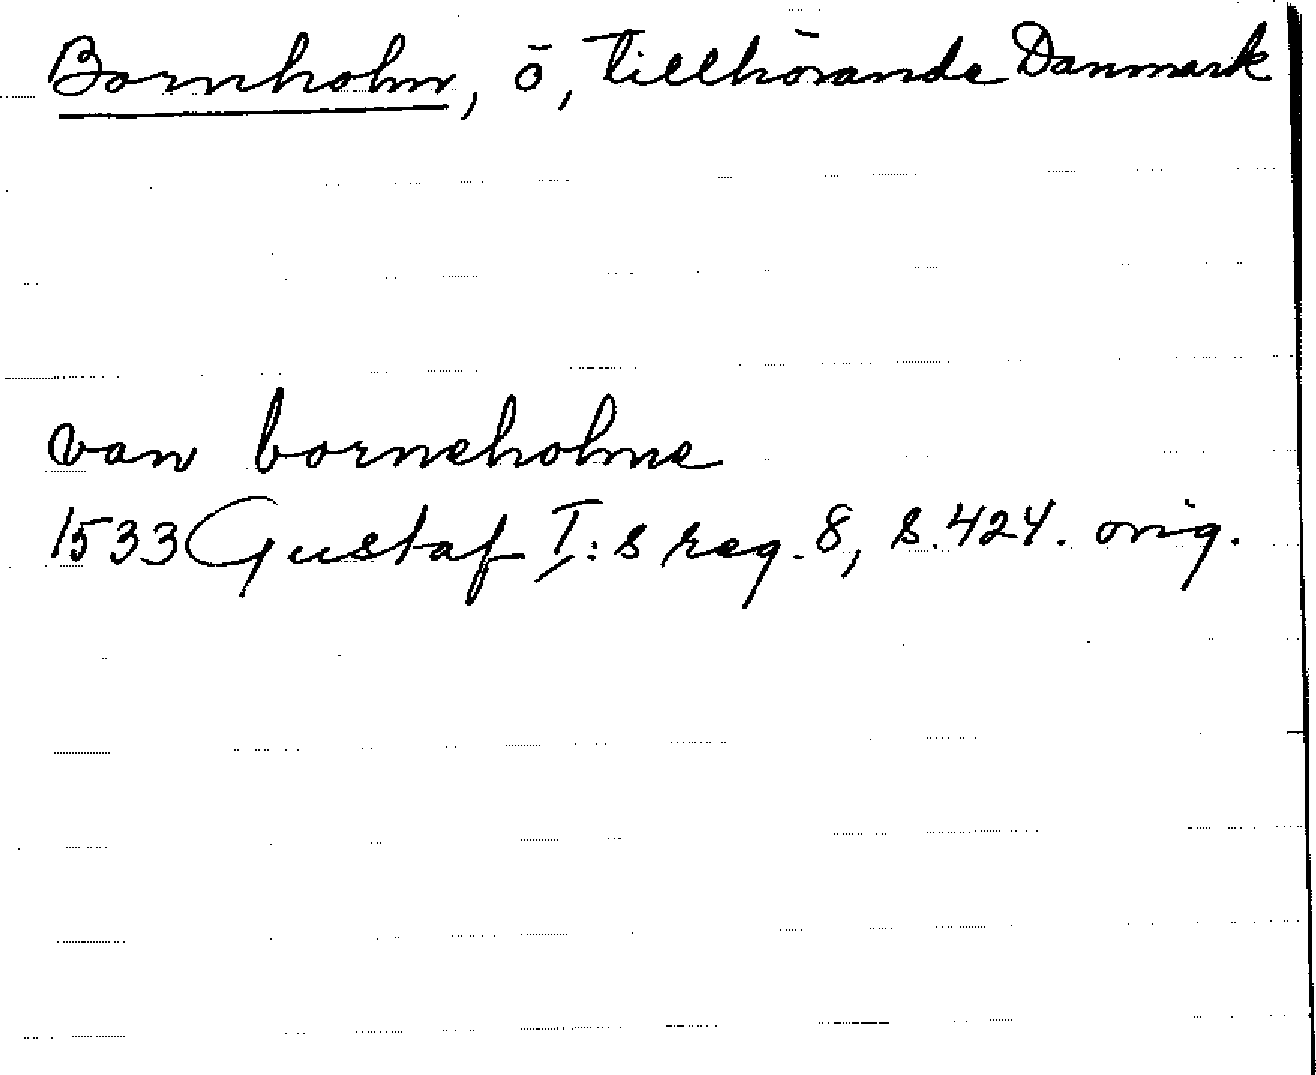 Bornholm, ö, tillhörande Danmark
van borneholme
1533 Gustaf I:s reg. 8, s. 424. orig.